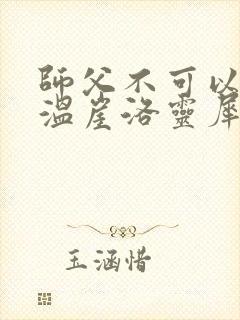 師父不可以
溫崖洛靈犀
玉涵惜